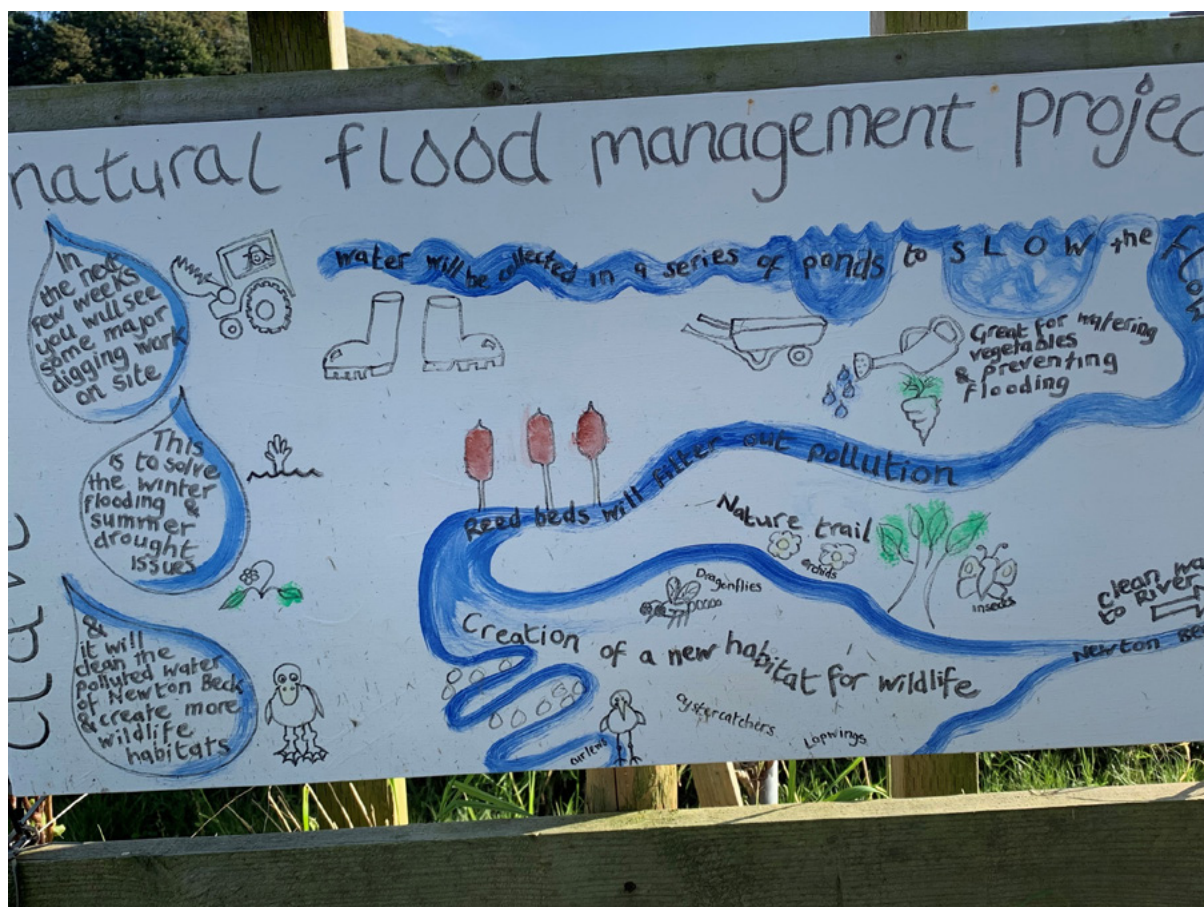 natural flood management projec
In
the next
few weeks
you will see
some major
digging work
on site
This
is to solve
the winter
flooding &
summer
drought
issues
&
it will
clean the
polluted water
of Newton Beck
& create more
wildlife
habitats
water will be collected in a series of ponds to SLOW the flow
Great for watering
vegetables
& preventing
flooding
Reed beds will filter out pollution
Nature trail
orchids
insects
Dragonflies
Creation of a new habitat for wildlife
oystercatchers
Lapwings
curlews
clean wa
to River
Newton Be